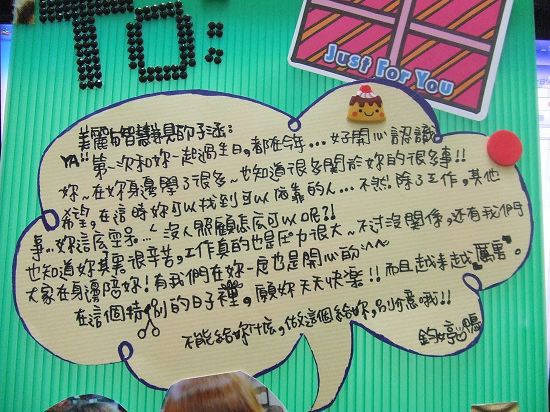 TO:
Just For You
美麗有智慧的子涵:
YA!! 第一次和妳一起過生日,都在今年...好開心認識
妳~在妳身邊學了很多~也知道很多關於妳的很多事!!
希望,在這時妳可以找到可以依靠的人...不然!除了工作,其他
事...妳這麼...沒人照顧怎麼可以呢?!
也知道妳其實很辛苦,工作真的也是壓力很大~不過沒關係,還有我們
大家在身邊陪妳!有我們在妳一定也是開心的^^
在這個特別的日子裡,願妳天天快樂!!而且越來越厲害。
不能給妳什麼,做這個給妳,別介意哦!!
鈞婷